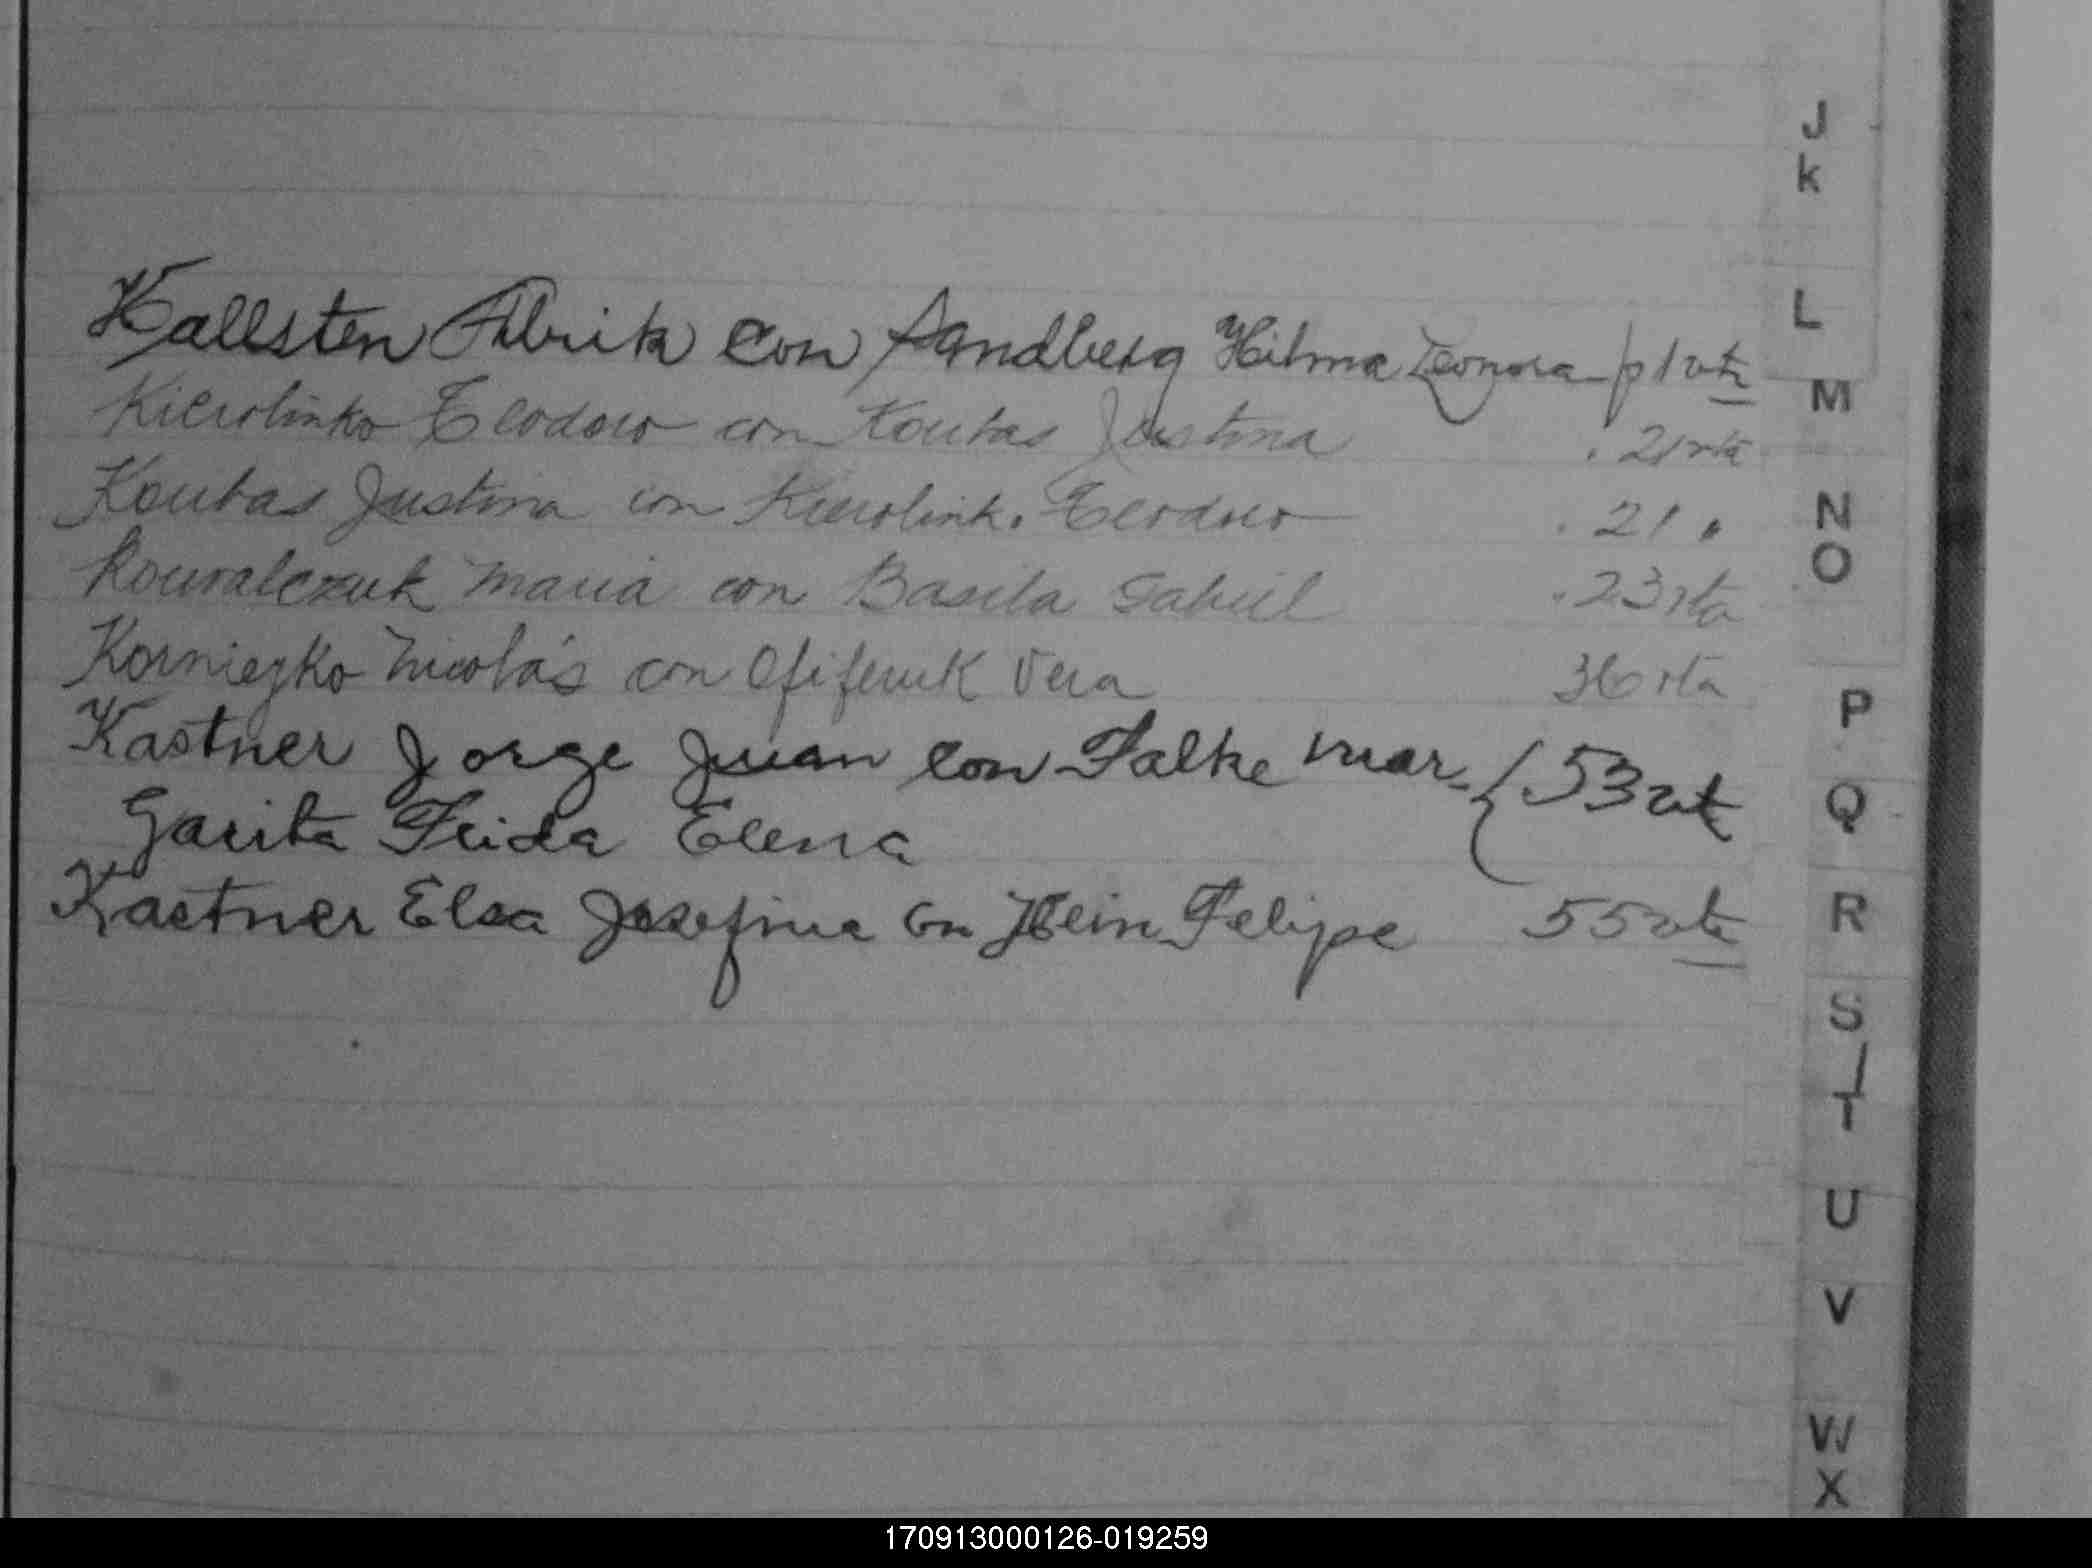 Kallsten Albrik con Sandberg Hilma Leonora p 1 vta
Kierolinko Teodoro con Koubas Justina . 21 vta
Koubas Justina con Kierolink. Teodoro . 21 "
Kowalczuk Maria con Basila Gabriel . 23 vta
Korniezko Nicolás con Ofiferuk Vera 36 vta
Kastner Jorge Juan con Falke Mar- 53 vta
garita Frida Elena
Kastner Elsa Josefina con Hein Felipe 55 vta
J
K
L
M
N
O
P
Q
R
S
T
U
V
W
X
170913000126-019259